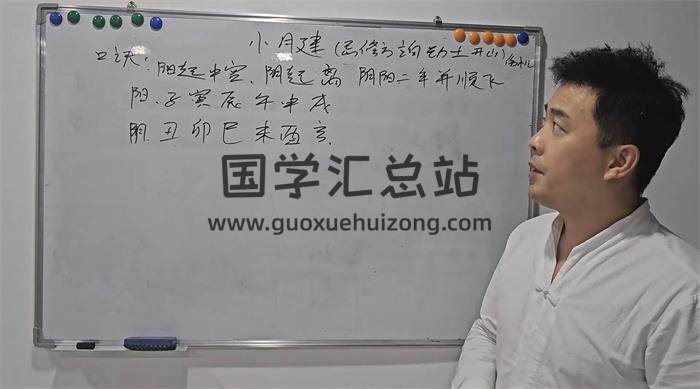 小月建(忌修方 动土 开山)
口诀:阳起中宫、阴起离 阴阳二年并顺飞
阳:子寅辰午申戌
阴:丑卯巳未酉亥
国学汇总站
www.guoxuehuizong.com